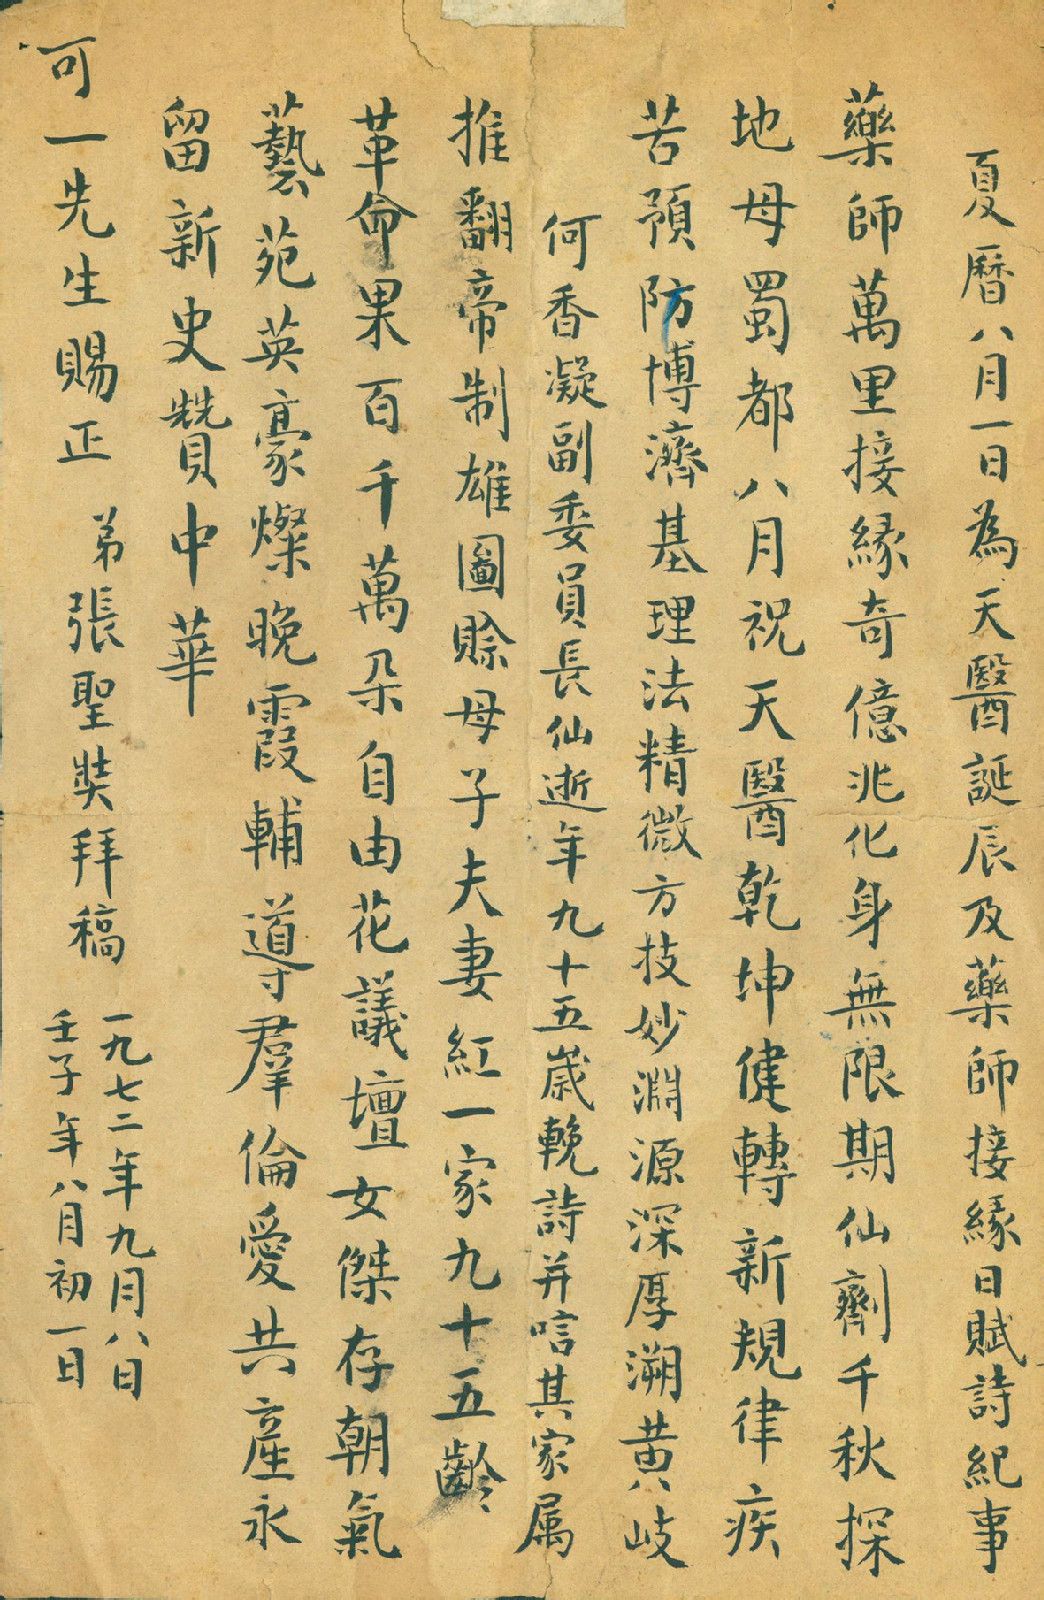 夏曆八月一日為天醫誕辰及藥師接緣日賦詩紀事
藥師萬里接緣奇億兆化身無限期仙劑千秋探
地母蜀都八月祝天醫乾坤健轉新規律疾
苦預防博濟基理法精微方技妙淵源深厚溯黄岐
何香凝副委員長仙逝年九十五歲輓詩并唁其家属
推翻帝制雄圖賒母子夫妻紅一家九十五齡
革命果百千萬朵自由花議壇女傑存朝氣
藝苑英豪燦晚霞輔導羣倫愛共産永
留新史贊中華
可一先生賜正
弟張聖奘拜稿
一九七二年九月八日
壬子年八月初一日